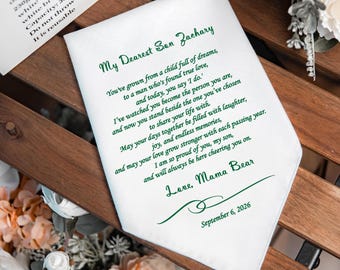 My Dearest Son Zachary
You've grown from a child full of dreams,
to a man who's found true love,
and today, you say 'I do.'
I've watched you become the person you are,
and now you stand beside the one you've chosen
to share your life with.
May your days together be filled with laughter,
joy, and endless memories,
and may your love grow stronger with each passing year.
I am so proud of you, my son,
and will always be here cheering you on.
Love, Mama Bear
September 6, 2026